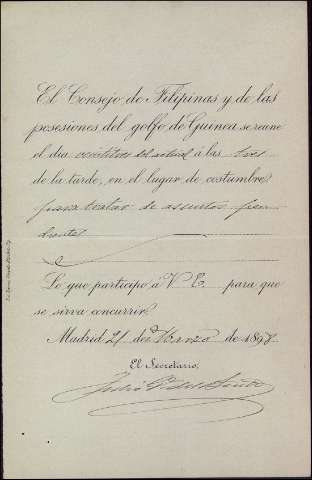 El Consejo de Filipinas y de las
posesiones del golfo de Guinea se reune
el dia veintitres del actual á las tres
de la tarde, en el lugar de costumbre
para tratar de asuntos pen
dientes
Lo que participo á V. E. para que
se sirva concurrir.
Madrid 21 de Marzo de 1898.
El Secretario,